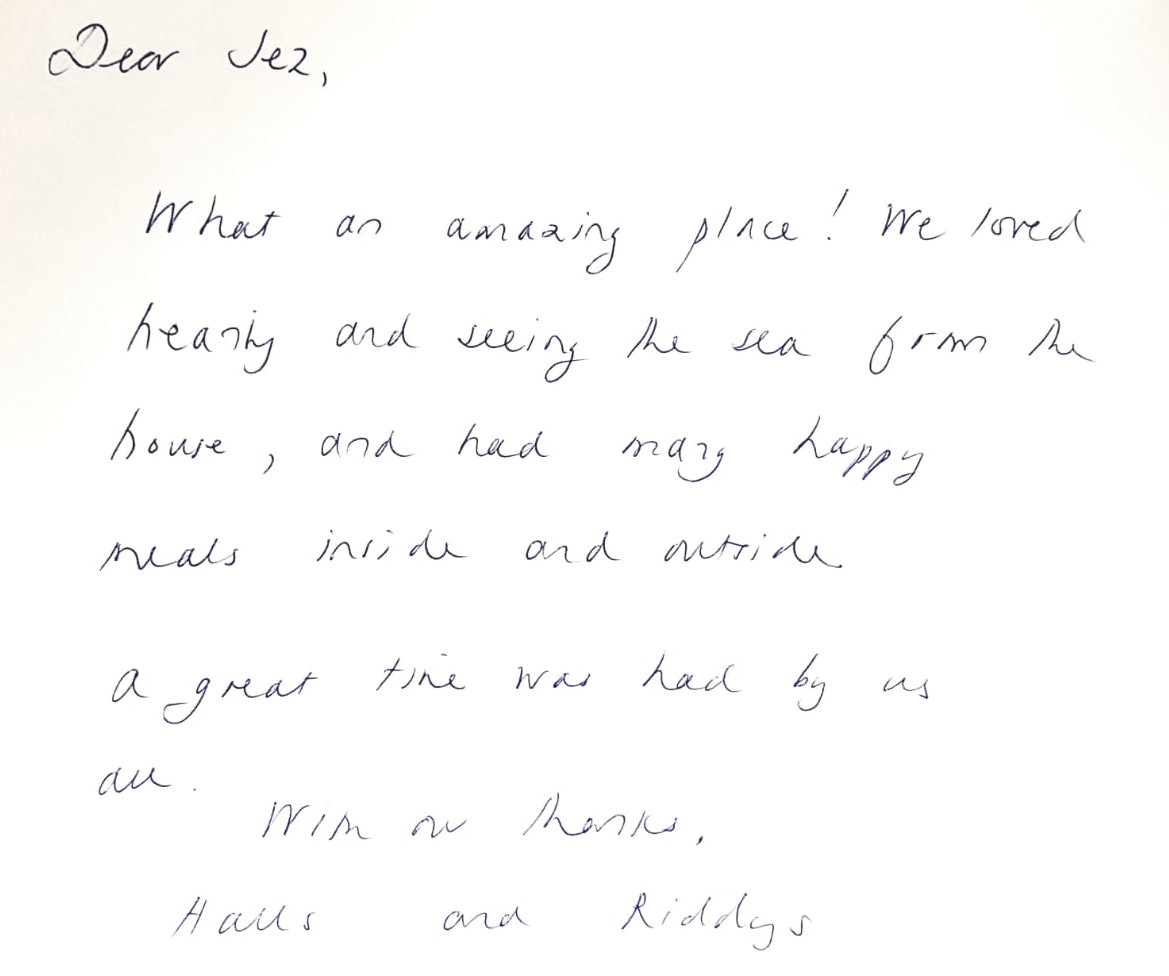 Dear Jez,
What an amazing place! We loved
hearing and seeing the sea from the
house, and had many happy
meals inside and outside
A great time was had by us
all.
With our thanks,
Halls and Riddys